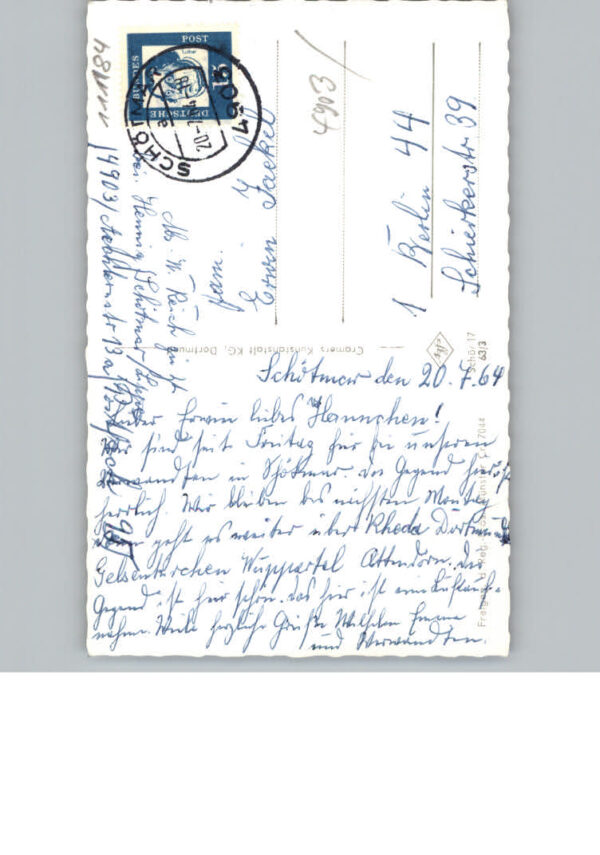 Schötmar den 20.7.64
Lieber Erwin liebes Hannchen!
Wir sind seit Freitag hier bei unseren
Verwandten in Schötmar. Die Gegend hier ist
herrlich. Wir bleiben bis nächsten Montag
dann geht es weiter über Rheda Dortmund
Gelsenkirchen Wuppertal Attendorn. die
Gegend ist hier schön. das hier ist eine
Viele herzliche Grüße Wilhelm Emma
und Verwandten.
Fam.
Erwin Jaekel
1 Berlin 44
Schierkerstr 39
4903
111184
bei Hennig Schötmar/Lippe
4903
Postfach 95
DEUTSCHE BUNDESPOST
15
Luther
SCHÖTMAR
20-7.64
4903
Cramers Kunstanstalt KG, Dortmund
Schö/ 17
63/3